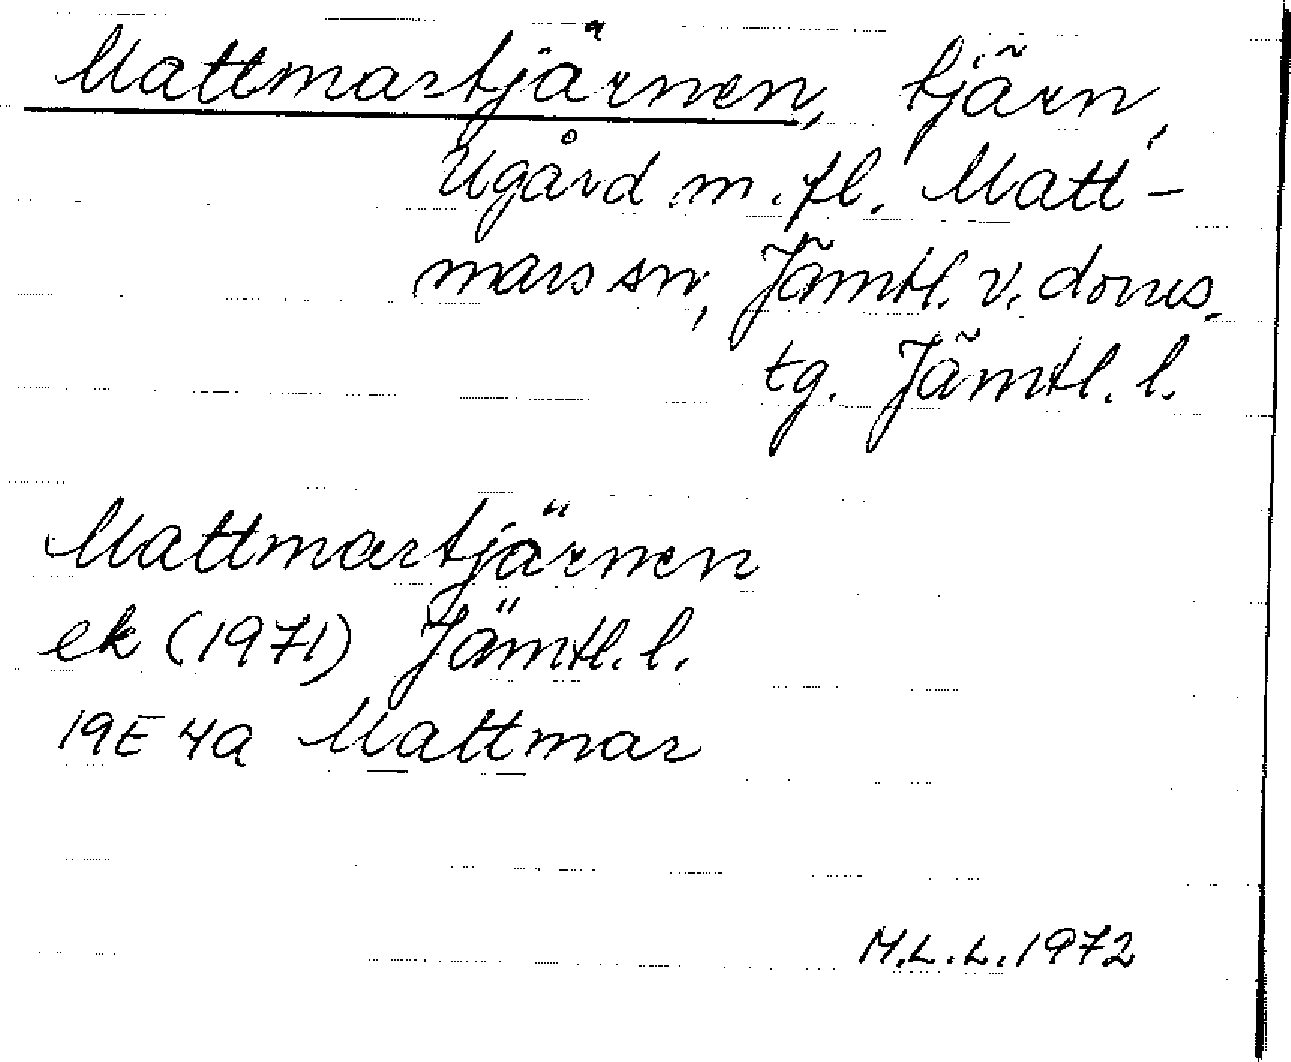 Mattmartjärnen, tjärn,
Ugård m.fl. Matt-
mars sn, Jämtl. v. doms.
tg. Jämtl. l.
Mattmartjärnen
ek (1971) Jämtl. l.
19E 4a Mattmar
M.L.L. 1972